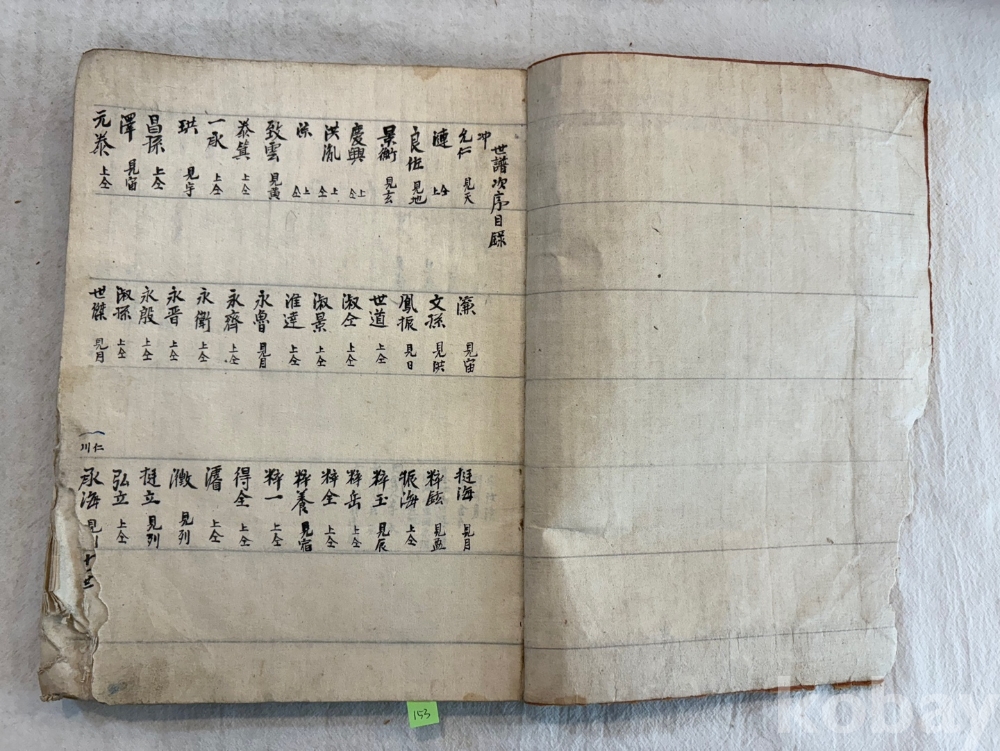 世譜次序目録
冲
允仁 見天
漣 上仝
良佐 見地
景衡 見玄
慶興 上仝
洪胤 上仝
上仝
致雲 見黃
泰箕 上仝
一永 上仝
珙 見宇
昌孫 上仝
澤 見宙
元泰 上仝
濂 見宙
文孫 見洪
鳳振 見日
世道 上仝
淑仝 上仝
淑景 上仝
淮達 上仝
永魯 見月
永齊 上仝
永衛 上仝
永晋 上仝
永殷 上仝
淑孫 上仝
世傑 見月
挺海 見月
粹鉉 見盈
振海 上仝
粹玉 見辰
粹岳 上仝
粹全 上仝
粹養 見宿
粹一 上仝
得全 上仝
濬 上仝
澂 見列
挺立 見列
弘立 上仝
仁川
承海 見
kobay
153